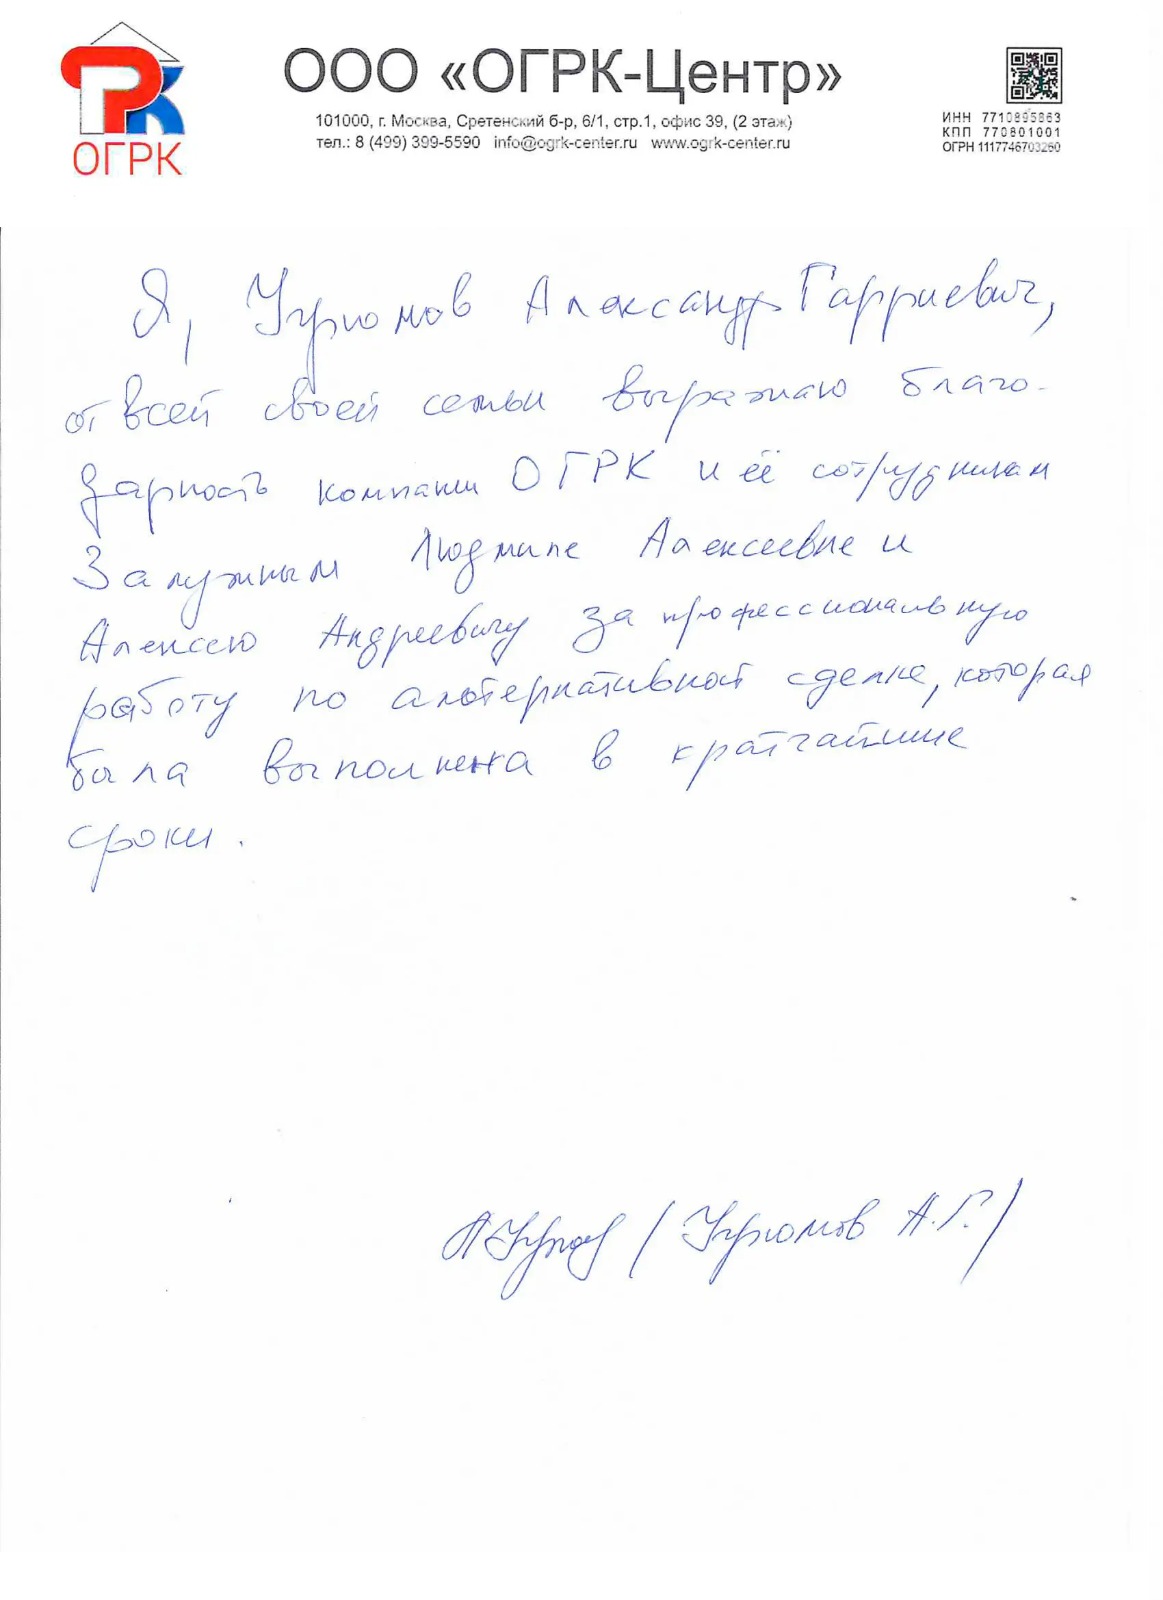 ОГРК
ООО «ОГРК-Центр»
101000, г. Москва, Сретенский б-р, 6/1, стр.1, офис 39, (2 этаж)
тел.: 8 (499) 399-5590 info@ogrk-center.ru www.ogrk-center.ru
ИНН 7710895863
КПП 770801001
ОГРН 1117746703260
Я, Александр Гарриевич,
от всей своей семьи выражаю благо-
дарность компании ОГРК и её сотрудникам
Залужным Людмиле Алексеевне и
Алексею Андреевичу за профессиональную
работу по альтернативной сделке, которая
была выполнена в кратчайшие
сроки.
А.Г.)